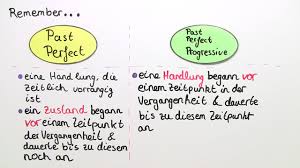 Remember...
Past
Perfect
Past
Perfect
Progressive
• eine Handlung, die
zeitlich vorrangig
ist
• ein Zustand begann
vor einem Zeitpunkt
der Vergangenheit &
dauerte bis zu diesem
noch an
• eine Handlung begann vor
einem Zeitpunkt in der
Vergangenheit & dauerte
bis zu diesem Zeitpunkt
an